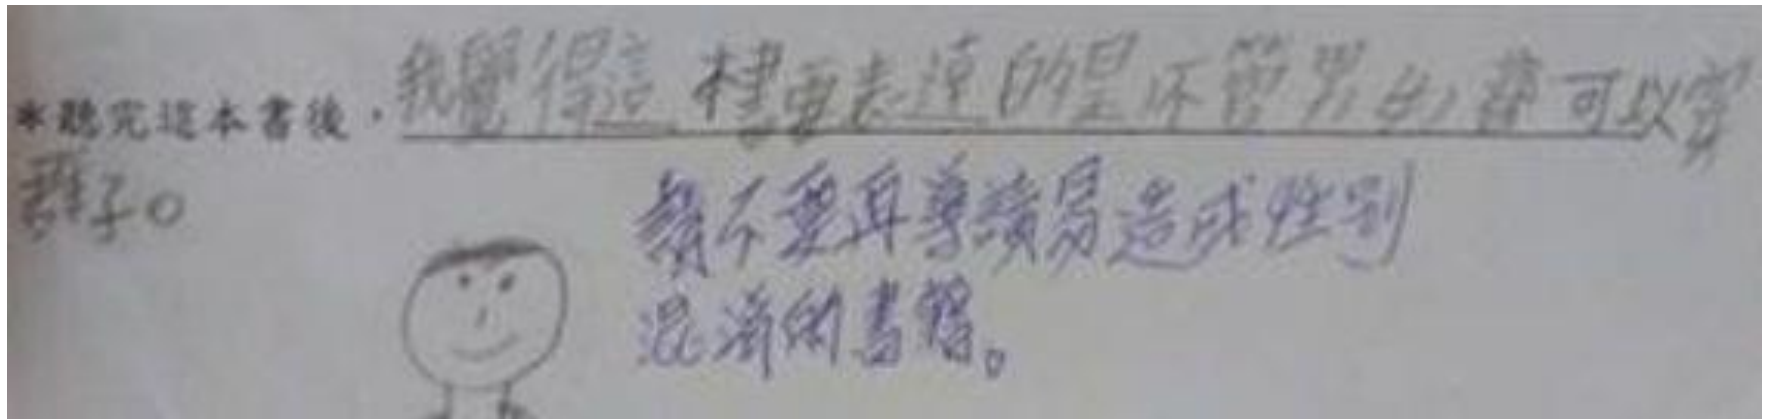 *聽完這本書後,我覺得這本書要表達的是不管男生女生都可以穿
裙子。
請不要再導讀易造成性別
混淆的書籍。